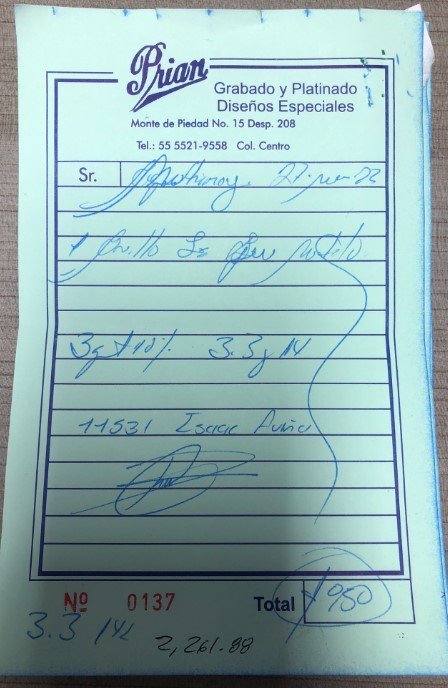 Prian
Grabado y Platinado
Diseños Especiales
Monte de Piedad No. 15 Desp. 208
Tel.: 55 5521-9558 Col. Centro
Sr.
1
3g + 10% 3.3g 14
11531 Isaac
Nº 0137 Total 950
3.3 14k
2,261.88